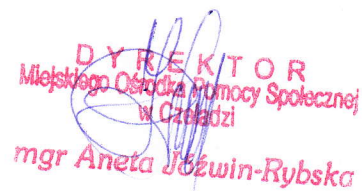 DYREKTOR
Miejskiego Ośrodka Pomocy Społecznej
w Czeladzi
mgr Aneta Jóźwin-Rybska